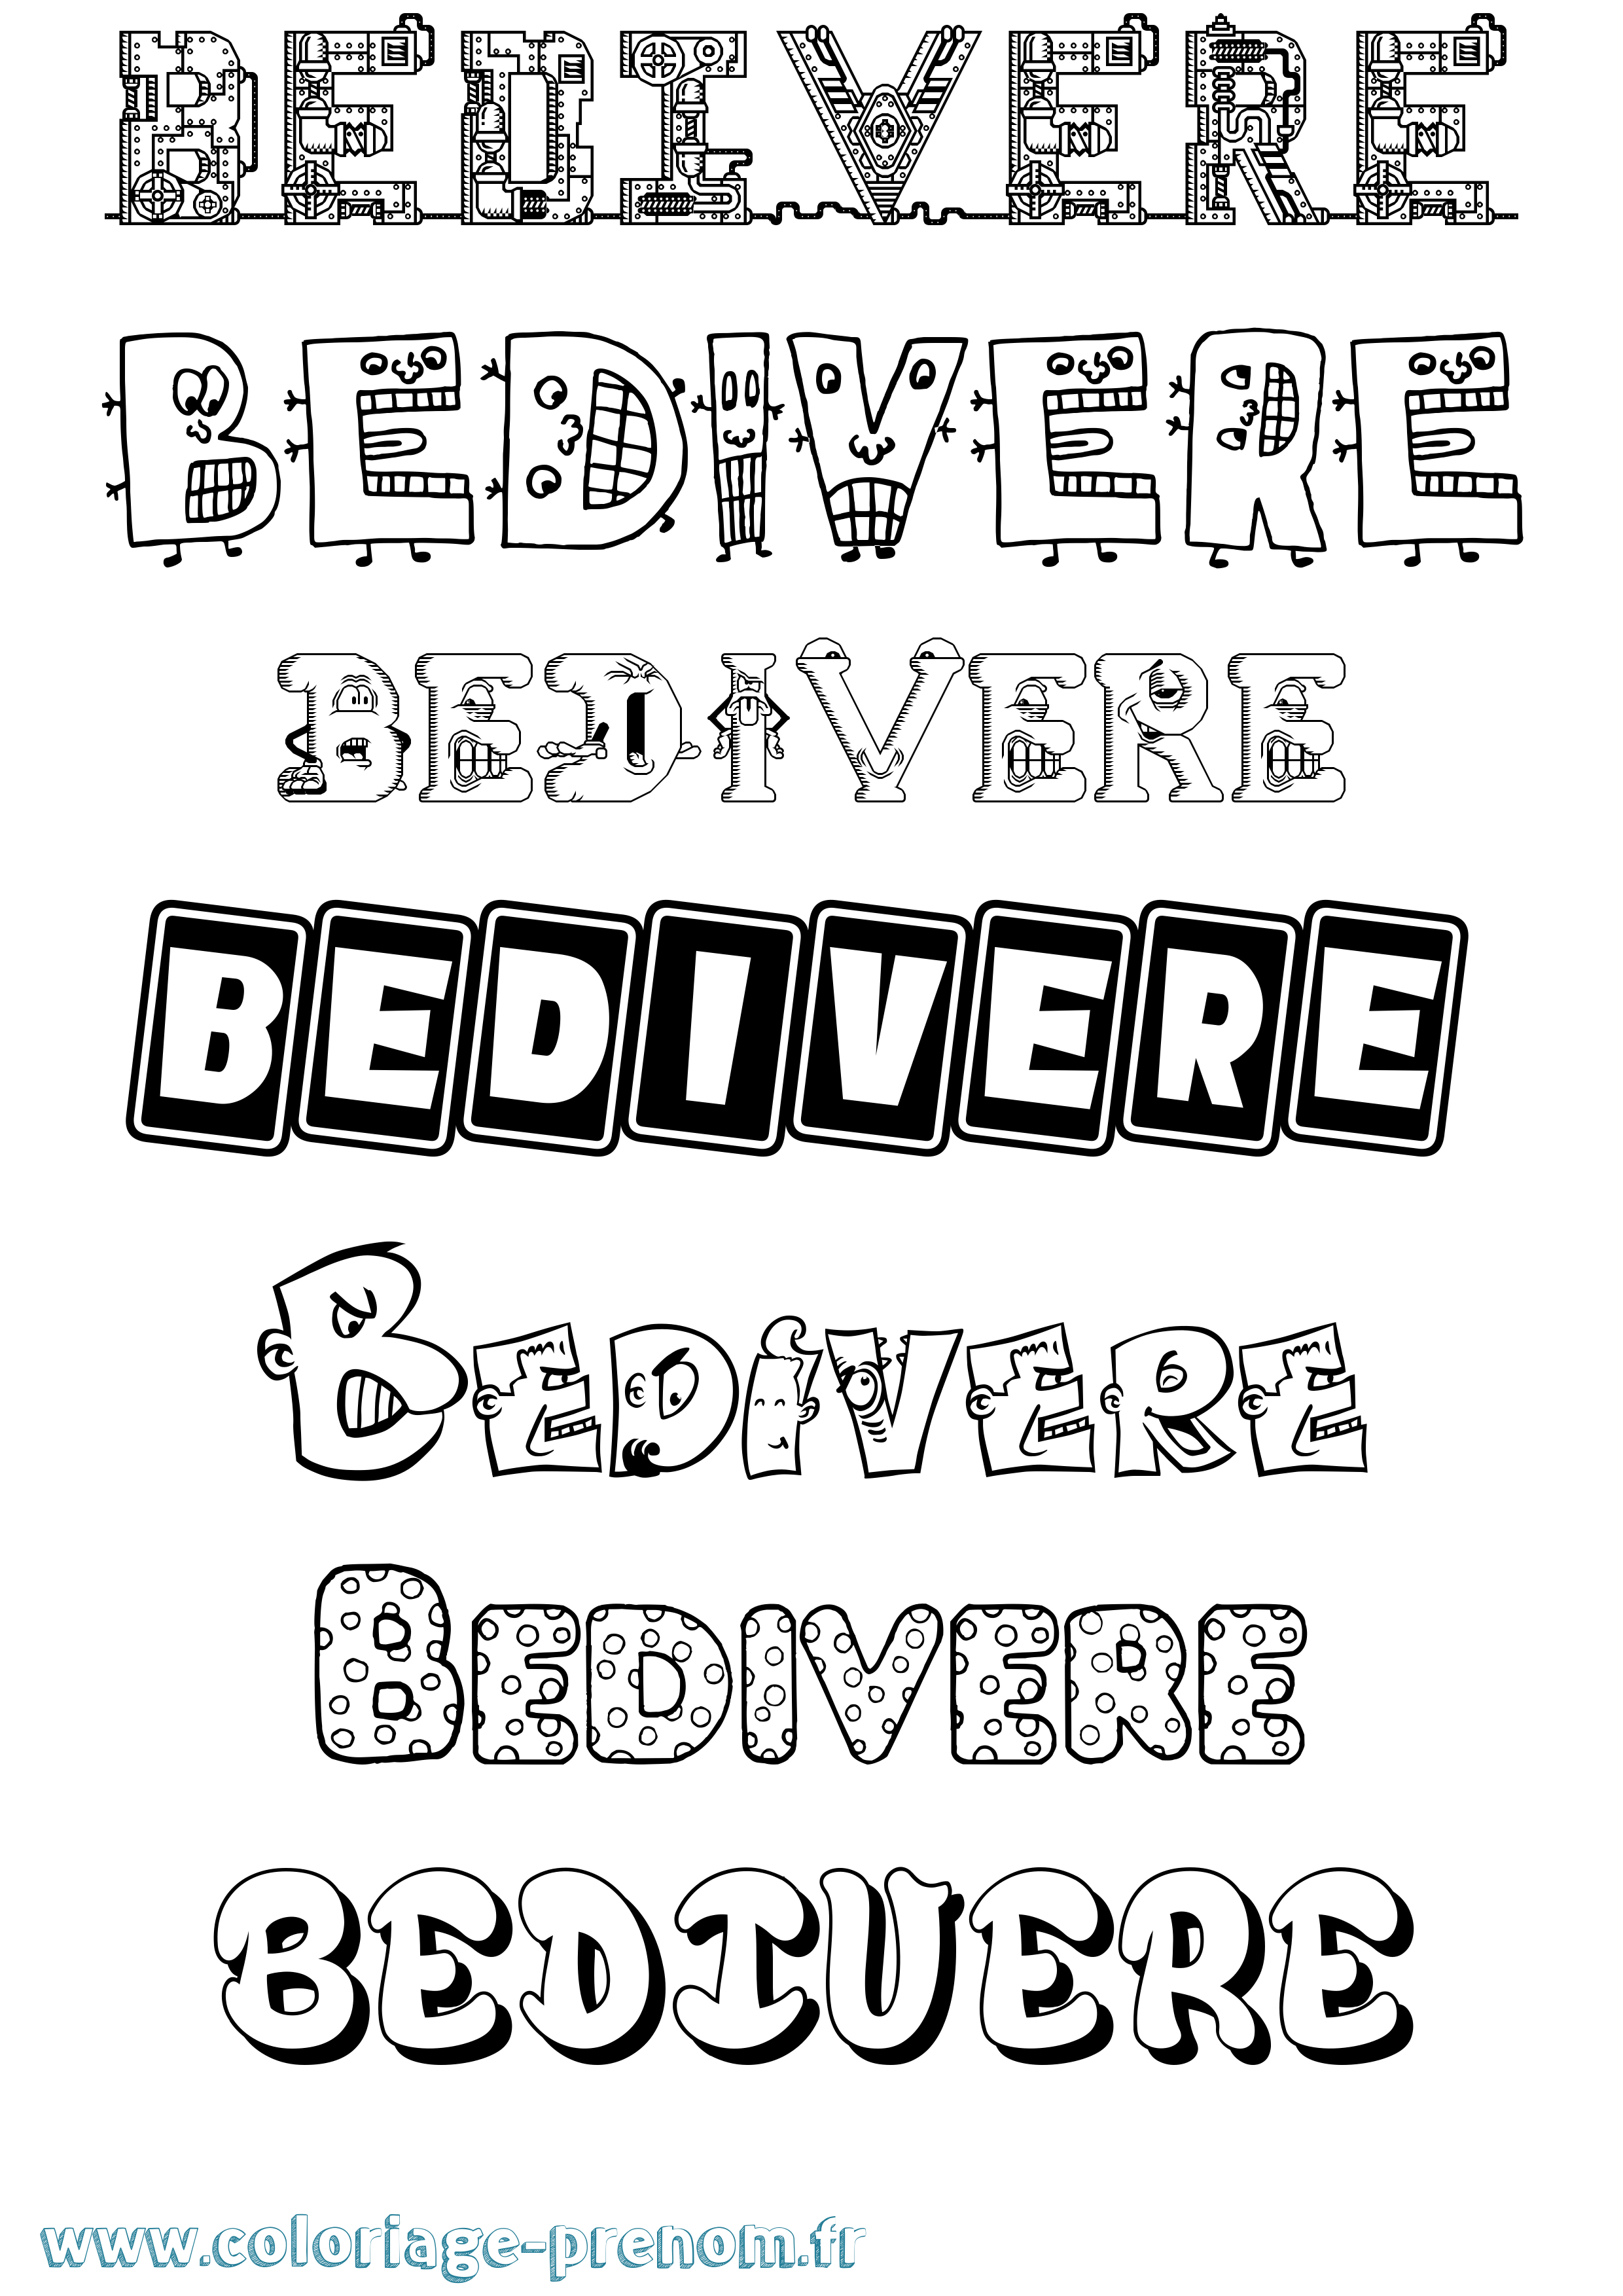 BEDIVERE
BEDIVERE
BEDIVERE
BEDIVERE
BEDIVERE
BEDIVERE
BEDIVERE
www.coloriage-prenom.fr